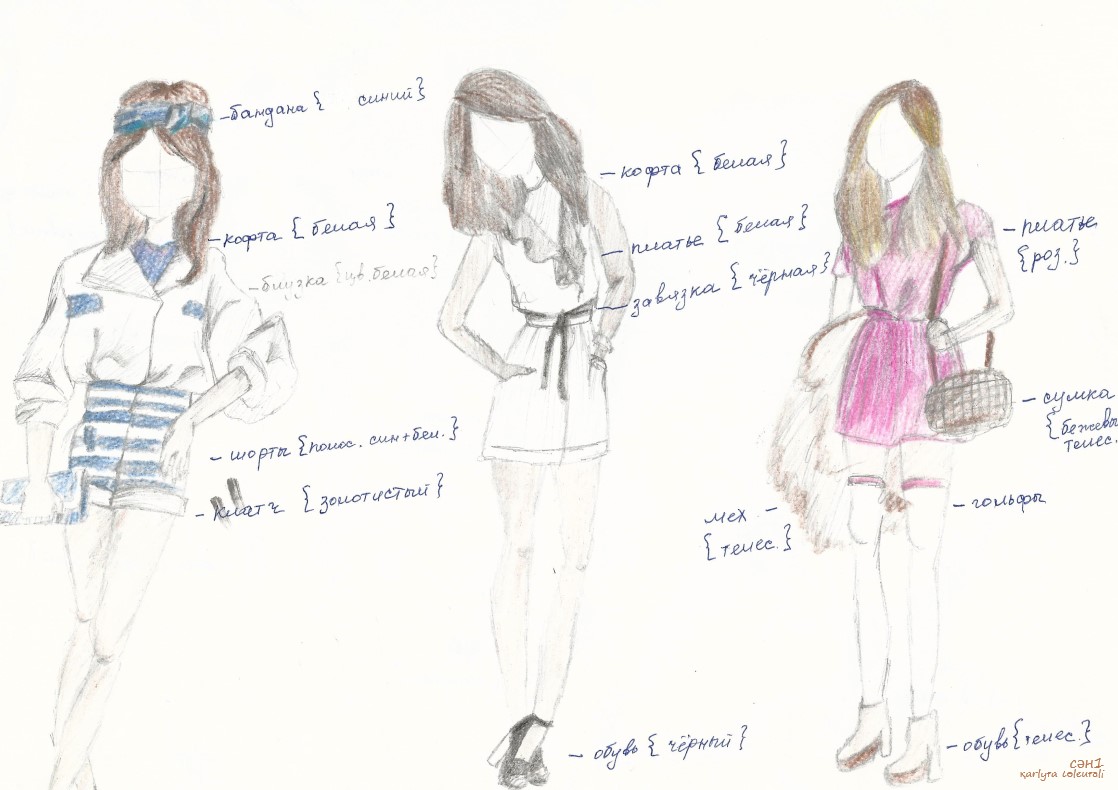 – бандана { синий }
– кофта { белая }
– блузка {цв. белая}
– шорты {полос. син+бел.}
– клатч { золотистый }
– кофта { белая }
– платье { белая }
– завязка { чёрная }
– обувь { чёрный }
– платье
{роз.}
– сумка
{бежевы
телес.
– гольфы
мех –
{телес.}
– обувь {телес.}